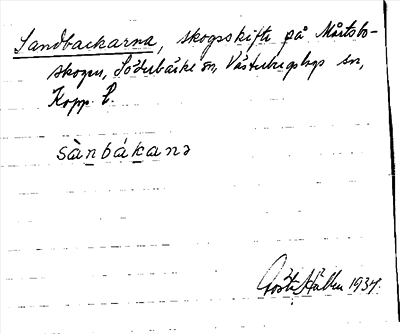 Sandbackarna, skogsskifte på Mårtsbo-
skogen, Söderbärke sn, Västerbergslags
Kopp. l.
sànbákanə
Gösta Hållen 1934.